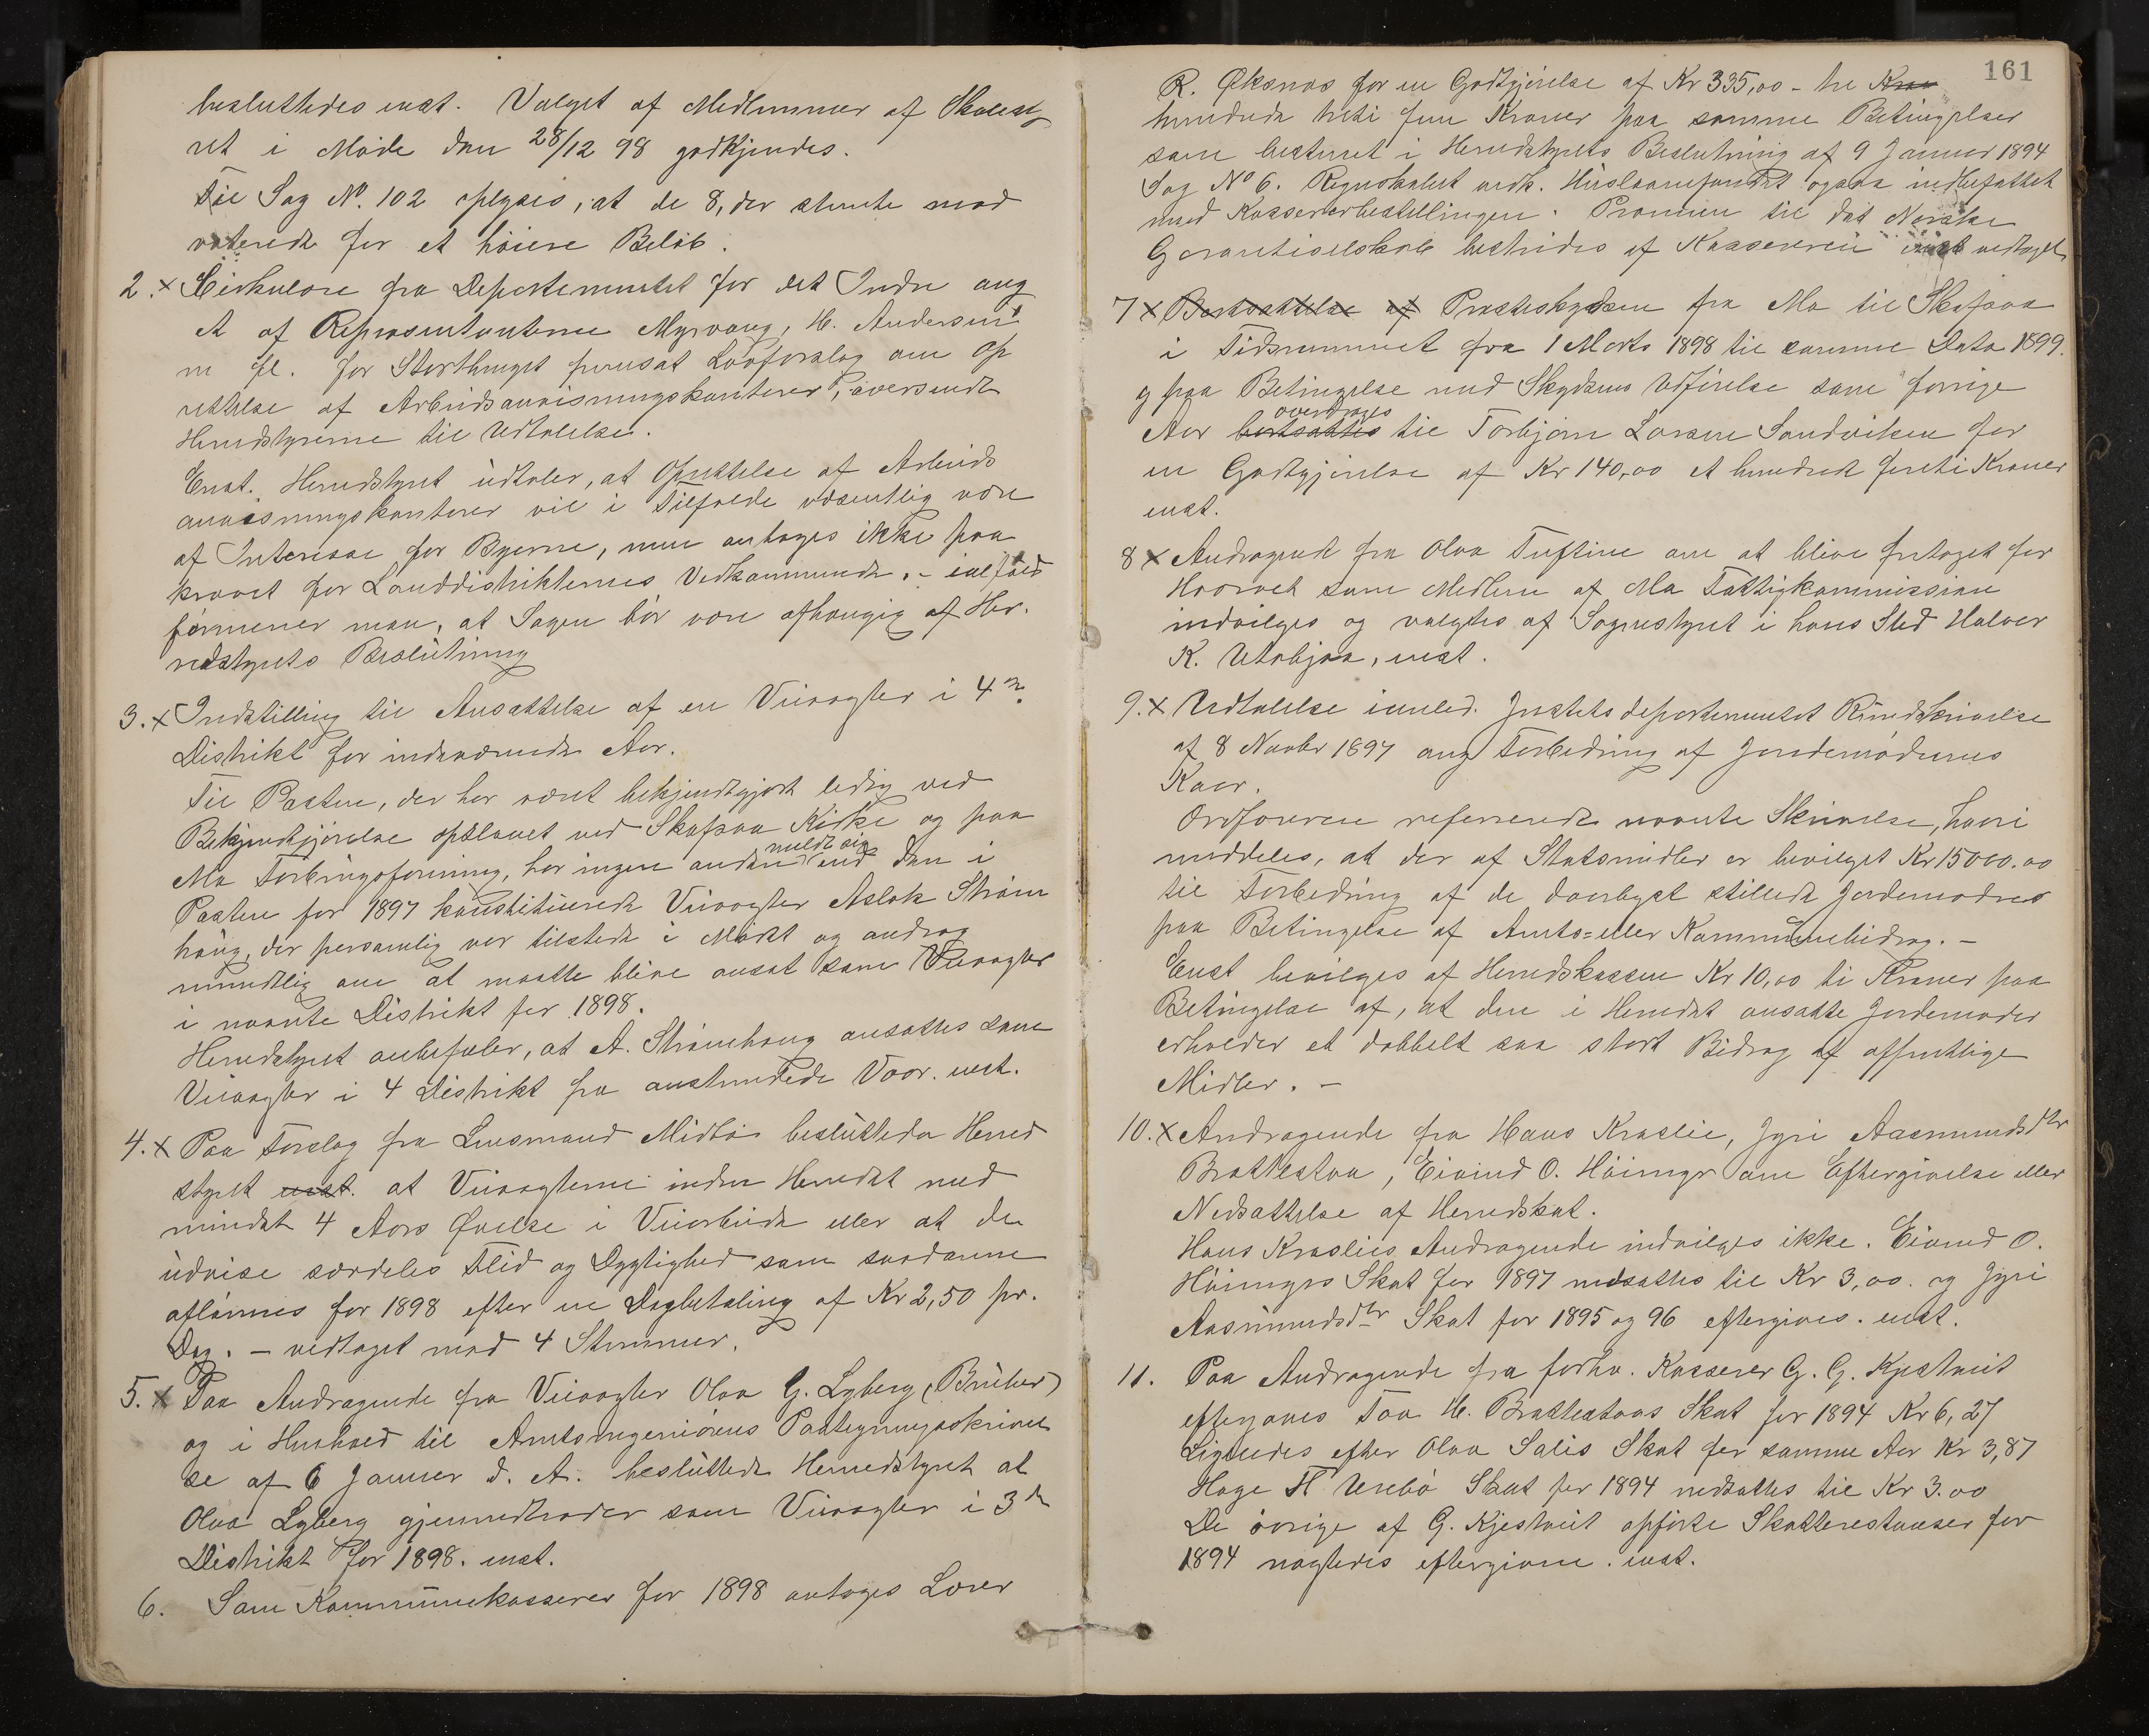 besluttedes enst. Valget af Medlemmer af Skolesty
ret i Møde den 28/12 98 godkjendes.
Til Sag No. 102 oplyses, at de 8, der stemte mod
voterede for et høiere Beløb.
2. x Cirkulære fra Departementet for det Indre ang
et af Repræsentanterne Myrvang, H. Andersen
m fl. for Storthinget fremsat Lovforslag om Op
rettelse af Arbeidsanvisningskontorer, oversendt
Herredstyrerne til Udtalelse.
Enst. Herredstyret udtaler, at Oprettelse af Arbeids
anvisningskontorer vil i Tilfælde væsentlig være
af Interesse for Byerne, men antages ikke paa
krævet for Landdistrikternes Vedkommende. - ialfald
formener man, at Sagen bør være afhængig af Her-
redstyrets Beslutning
3. x Indstilling til Ansættelse af en Veivogter i 4de
Distrikt for indeværende Aar.
Til Posten, der har været bekjendtgjort ledig ved
Bekjendtgjørelse opslaaet ved Skafsaa Kirke og paa
Mo Forbrugsforening, har ingen anden meldt sig end den i
Posten for 1897 konstituerede Veivogter Aslak Strøm
haug, der personlig var tilstede i Mødet og androg
mundtlig om at maatte blive ansat som Veivogter
i nævnte Distrikt for 1898.
Herredstyret anbefaler, at A. Strømhaug ansættes som
Veivogter i 4 Distrikt fra anstundede Vaar. enst.
4. x Paa Forslag fra Lensmand Midbø besluttede Herred
styret enst. at Veivogterne inden Herredet med
mindst 4 Aars Øvelse i Veiarbeide eller at de
udvise særdeles Flid og Dygtighed som saadanne
aflønnes for 1898 efter en Dagbetaling af Kr 2,50 pr.
Dag. - vedtaget mod 4 Stemmer.
5. x Paa Andragende fra Veivogter Olav G. Lyberg (Bruker)
og i Henhold til Amtsingeniørens Paategningsskrivel
se af 6 Januar d. A. besluttede Herredstyret at
Olav Lyberg gjenindtræder som Veivogter i 3de
Distrikt for 1898. enst.
6. Som Kommunekasserer for 1898 antages Lærer
161
R. Øksnæs for en Godtgjørelse af Kr 335,00 - tre Kron
hundrede treti fem Kroner paa samme Betingelser
som bestemt i Herredstyrets Beslutning af 9 Januar 1894
Sag No 6. Regnskabet vedk. Huslaanefondet ogsaa indbefattet
med Kassererbestillingen. Præmien til det Norske
Garantiselskab bestrides af Kassereren enst vedtaget
7 x Bortsættelse af Presteskydsen fra Mo til Skafsaa
i Tidsrummet fra 1 Marts 1898 til samme Dato 1899.
og paa Betingelse med Skydsens Udførelse som forrige
Aar bortsattes overdrages til Torbjørn Larsen Sandviken for
en Godtgjørelse af Kr 140,00 et hundrede firti Kroner
enst.
8 x Andragende fra Olav Tuftine om at blive fritaget for
Hvervet som Medlem af Mo Fattigkommission
indvilges og valgtes af Sognestyret i hans Sted Halvor
K. Utabjaa, enst.
9. x Udtalelse imled. Justitsdepartementet Rundskrivelse
af 8 Novbr 1897 ang Forbedring af Jordemødrenes
Kaar.
Ordføreren refererede nævnte Skrivelse, hvori
meddeles, at der af Statsmidler er bevilget Kr 15000.00
til Forbedring af de daarligst stillede Jordemødres
paa Betingelse af Amts= eller Kommunebidrag. -
Enst bevilges af Herredskassen Kr 10,00 ti Kroner paa
Betingelse af, at den i Herredet ansatte Jordemoder
erholder et dobbelt saa stort Bidrag af offentlige
Midler. -
10. x Andragende fra Hans Kraslie, Jyri Aasmundsdtr
Brattestaa, Eivind O. Høimyr om Eftergivelse eller
Nedsættelse af Herredskat.
Hans Kraslies Andragende indvilges ikke. Eivind O.
Høimyrs Skat for 1897 nedsættes til Kr 3,00. og Jyri
Aasmundsdtr Skat for 1895 og 96 eftergives. enst.
11. Paa Andragende fra forhv. Kasserer G. G. Kjestveit
eftergaves Tov H. Brattestaas Skat for 1894 Kr 6,27
Ligeledes efter Olav Salis Skat for samme Aar Kr 3,87
Hage H Urebø Skat for 1894 nedsattes til Kr 3.00
De øvrige af G. Kjestveit opførte Skatterestanser for
1894 nægtedes eftergivne. enst.